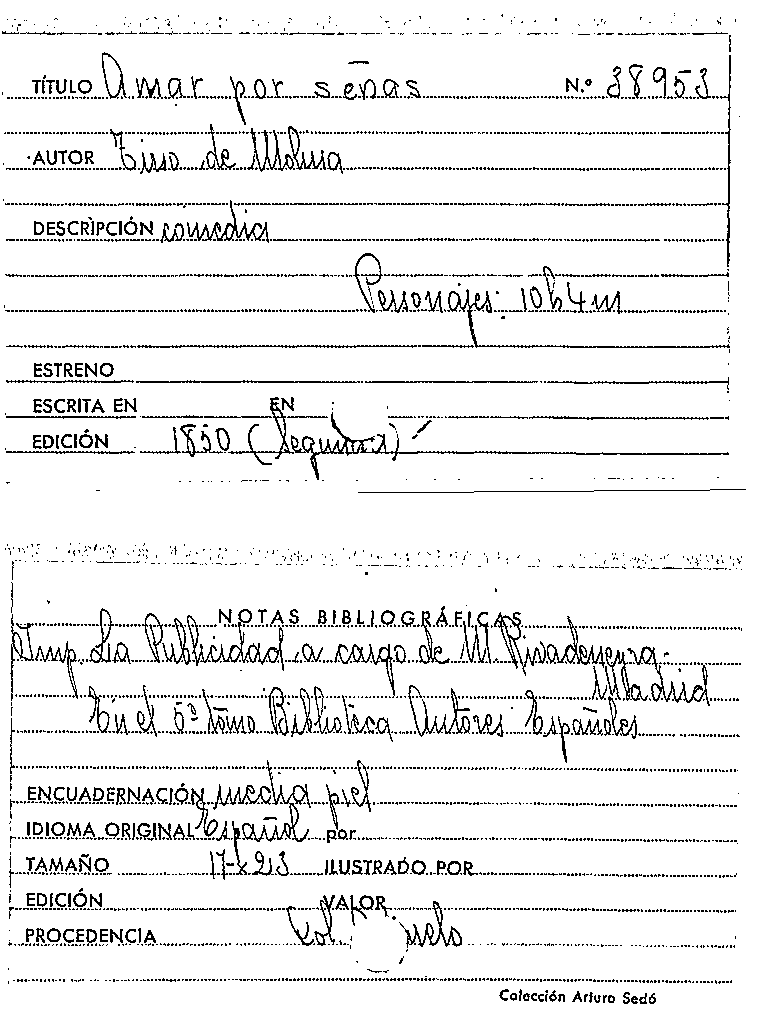 TÍTULO Amar por señas N.º 38953
AUTOR Tirso de Molina
DESCRIPCIÓN comedia
Personajes: 10 h 4 m
ESTRENO
ESCRITA EN EN
EDICIÓN 1850 (Segunda)
NOTAS BIBLIOGRÁFICAS
Imp. La Publicidad a cargo de M. Rivadeneyra.
Madrid
En el 5º tomo Biblioteca Autores Españoles
ENCUADERNACIÓN media piel
IDIOMA ORIGINAL Español por
TAMAÑO 17 x 23 ILUSTRADO POR
EDICIÓN VALOR
PROCEDENCIA Col.
Colección Arturo Sedó